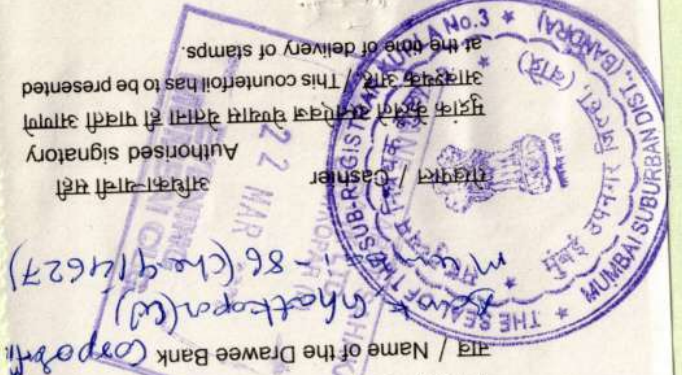 नाव / Name of the Drawee Bank Corporation
Bank Ghatkopar (W)
Mumbai - 86 (Che 914627)
रोखपाल / Cashier
अधिकाऱ्याची सही
Authorised signatory
मुद्रांक केलेले दस्तऐवज घेण्यास येताना ही पावती आणणे
आवश्यक आहे. / This counterfoil has to be presented
at the time of delivery of stamps.
THE SEAL OF THE SUB-REGISTRAR KURLA No.3
MUMBAI SUBURBAN DIST., (BANDRA)
मुंबई उपनगर जिल्हा, (बांद्रा)
22 MAR